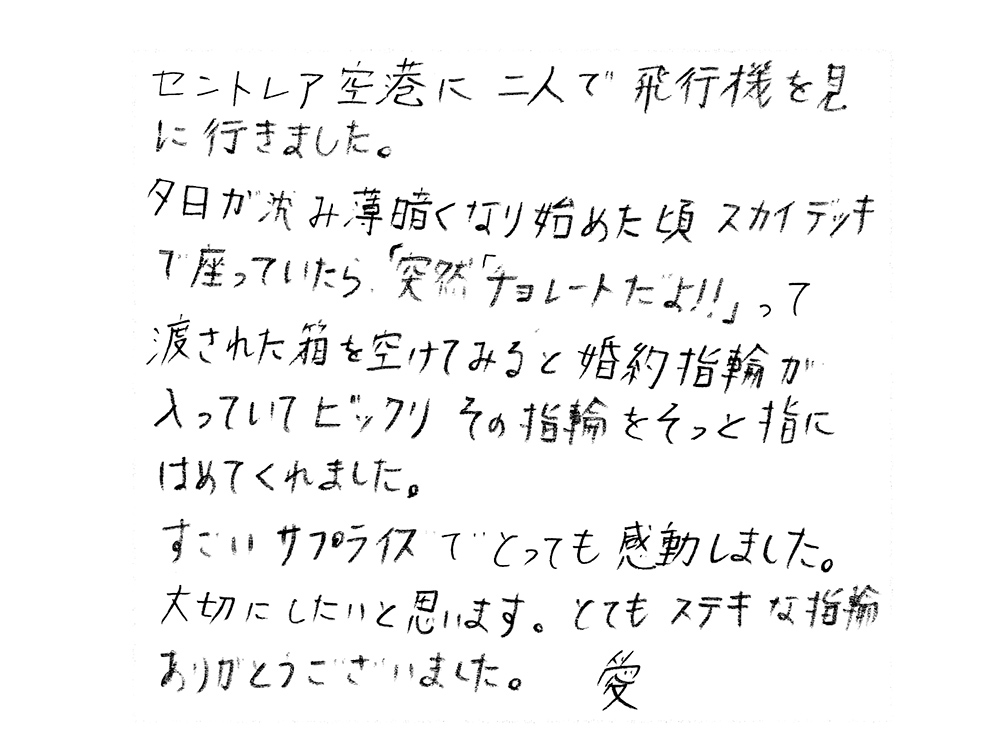 セントレア空港に 二人で 飛行機を見
に行きました。
夕日が沈み薄暗くなり始めた頃 スカイデッキ
で座っていたら、「突然「チョレートだよ!!」って
渡された箱を空けてみると婚約指輪が
入っていてビックリ その指輪をそっと指に
はめてくれました。
すごいサプライズでとっても感動しました。
大切にしたいと思います。とてもステキな指輪
ありがとうございました。 愛